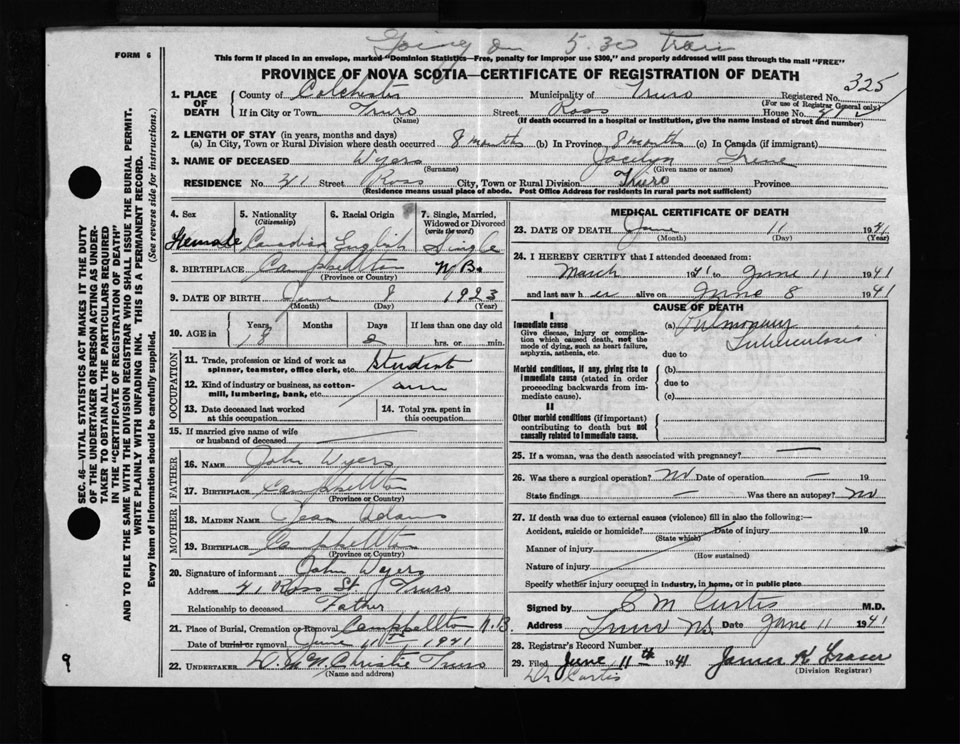 Going on 5.30 train
FORM 6
This form if placed in an envelope, marked "Dominion Statistics—Free, penalty for improper use $300," and properly addressed will pass through the mail "FREE"
PROVINCE OF NOVA SCOTIA—CERTIFICATE OF REGISTRATION OF DEATH
325
1. PLACE OF DEATH
County of Colchester Municipality of Truro Registered No.
(For use of Registrar General only)
If in City or Town Truro Street Ross House No. 41
(Name) (If death occurred in a hospital or institution, give the name instead of street and number)
2. LENGTH OF STAY (in years, months and days)
(a) In City, Town or Rural Division where death occurred 8 months (b) In Province 8 months (c) In Canada (if immigrant)
3. NAME OF DECEASED Wyers Jocelyn Irene
(Surname) (Given name or names)
RESIDENCE No. 41 Street Ross City, Town or Rural Division Truro Province
(Residence means usual place of abode. Post Office Address for residents in rural parts not sufficient)
4. Sex 5. Nationality 6. Racial Origin 7. Single, Married,
(Citizenship) Widowed or Divorced
(write the word)
Female Canadian English Single
8. BIRTHPLACE Campbellton N.B.
(Province or Country)
9. DATE OF BIRTH June 9 1923
(Month) (Day) (Year)
10. AGE in Years Months Days If less than one day old
18 2 hrs. or min.
OCCUPATION
11. Trade, profession or kind of work as
spinner, teamster, office clerk, etc. Student
12. Kind of industry or business, as cotton-
mill, lumbering, bank, etc.
13. Date deceased last worked 14. Total yrs. spent in
at this occupation this occupation
15. If married give name of wife
or husband of deceased —
FATHER
16. NAME John Wyers
17. BIRTHPLACE Campbellton
(Province or Country)
MOTHER
18. MAIDEN NAME Jean Adams
19. BIRTHPLACE Campbellton
(Province or Country)
20. Signature of informant John Wyers
Address 41 Ross St Truro
Relationship to deceased Father
21. Place of Burial, Cremation or Removal Campbellton N.B.
Date of burial or removal June 11th 1941
22. UNDERTAKER Christie Truro
(Name and address)
MEDICAL CERTIFICATE OF DEATH
23. DATE OF DEATH June 11 1941
(Month) (Day) (Year)
24. I HEREBY CERTIFY that I attended deceased from:
March 1941 to June 11 1941
and last saw her alive on June 8 1941
CAUSE OF DEATH
I
Immediate cause (a) Pulmonary
Give disease, injury or complica- Tuberculosis
tion which caused death, not the
mode of dying, such as heart failure, due to
asphyxia, asthenia, etc.
Morbid conditions, if any, giving rise to (b)
immediate cause (stated in order due to
proceeding backwards from im-
mediate cause). (c)
II
Other morbid conditions (if important)
contributing to death but not
causally related to immediate cause.
25. If a woman, was the death associated with pregnancy? —
26. Was there a surgical operation? No Date of operation — 19
State findings — Was there an autopsy? No
27. If death was due to external causes (violence) fill in also the following:—
Accident, suicide or homicide? Date of injury 19
(State which)
Manner of injury
(How sustained)
Nature of injury
Specify whether injury occurred in industry, in home, or in public place
Signed by E M Curtis M.D.
Address Truro NS. Date June 11 1941
28. Registrar's Record Number
29. Filed June 11th 1941 James K Fraser
(Division Registrar)
Dr Curtis
SEC. 46—VITAL STATISTICS ACT MAKES IT THE DUTY
OF THE UNDERTAKER OR PERSON ACTING AS UNDER-
TAKER TO OBTAIN ALL THE PARTICULARS REQUIRED
IN THE "CERTIFICATE OF REGISTRATION OF DEATH"
AND TO FILE THE SAME WITH THE DIVISION REGISTRAR WHO SHALL ISSUE THE BURIAL PERMIT.
WRITE PLAINLY WITH UNFADING INK. THIS IS A PERMANENT RECORD.
Every item of information should be carefully supplied. (See reverse side for instructions.)
9